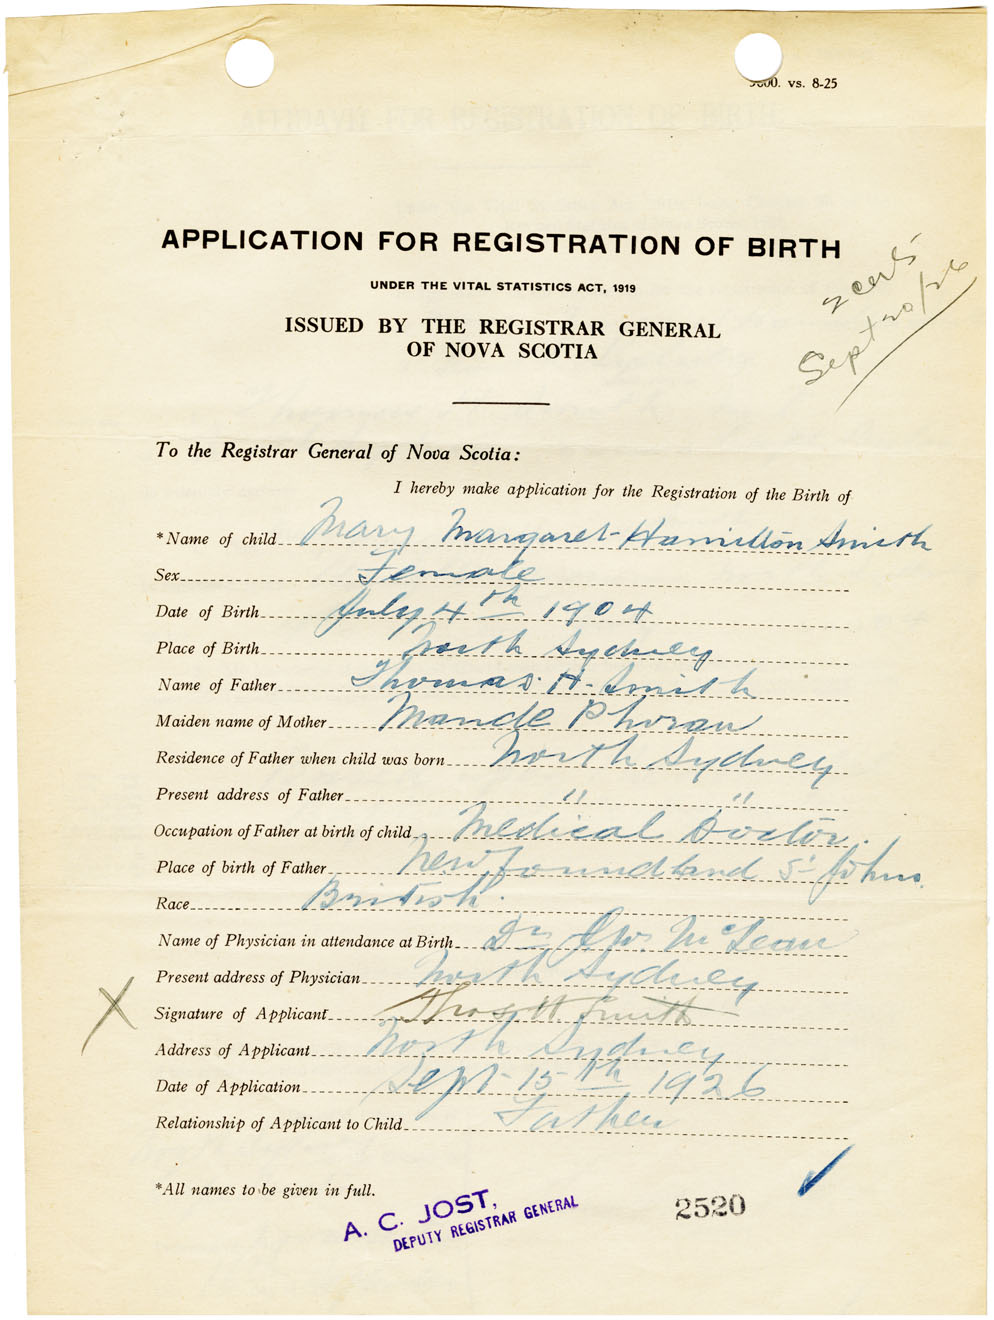 vs. 8-25
APPLICATION FOR REGISTRATION OF BIRTH
UNDER THE VITAL STATISTICS ACT, 1919
ISSUED BY THE REGISTRAR GENERAL
OF NOVA SCOTIA
2 certs
Sept 20/26
To the Registrar General of Nova Scotia:
I hereby make application for the Registration of the Birth of
*Name of child Mary Margaret Hamilton Smith
Sex Female
Date of Birth July 4th 1904
Place of Birth North Sydney
Name of Father Thomas H. Smith
Maiden name of Mother Maude Phoran
Residence of Father when child was born North Sydney
Present address of Father " "
Occupation of Father at birth of child Medical Doctor.
Place of birth of Father Newfoundland St Johns.
Race British.
Name of Physician in attendance at Birth Dr McLean
Present address of Physician North Sydney
Signature of Applicant Thos H Smith
X
Address of Applicant North Sydney
Date of Application Sept 15th 1926
Relationship of Applicant to Child Father
*All names to be given in full.
A. C. JOST,
DEPUTY REGISTRAR GENERAL
2520